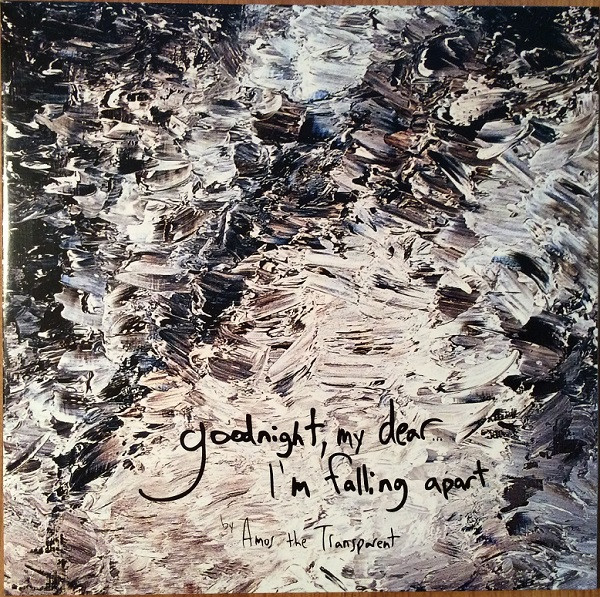 goodnight, my dear...
I'm falling apart
by Amos the Transparent